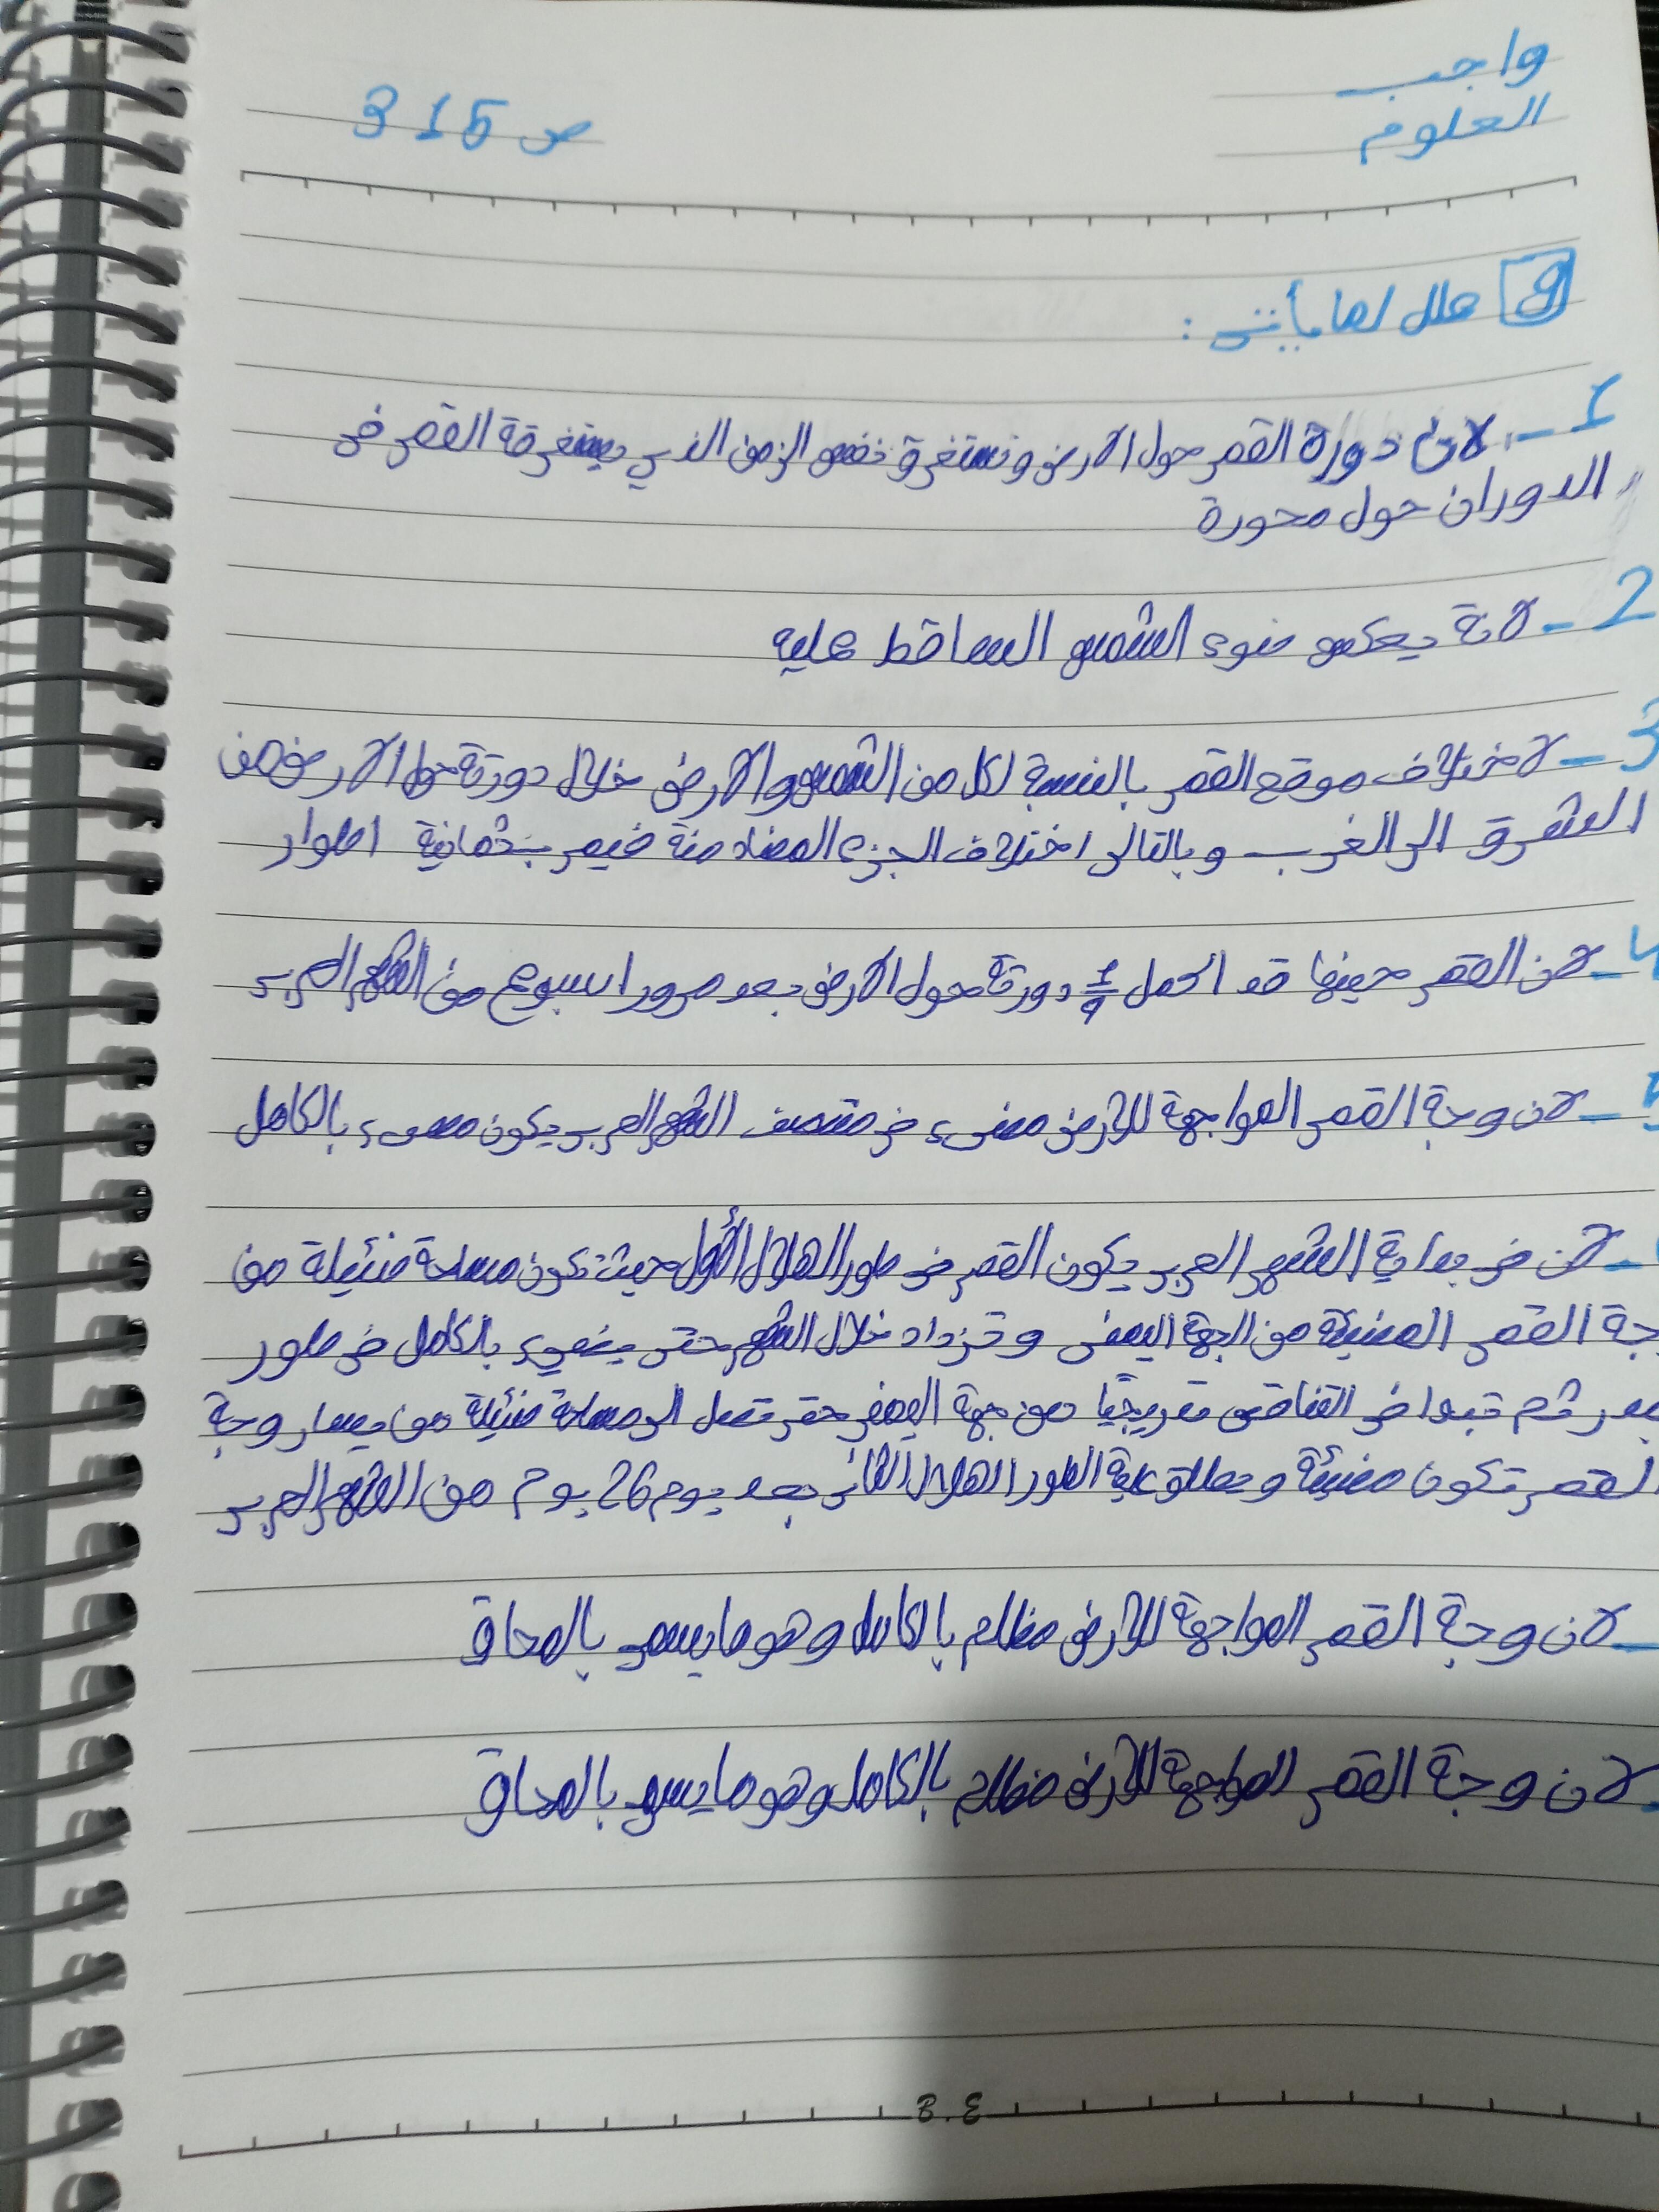 واجب
العلوم
ص 315
9 علل لما يأتى :
1 - لان دورة القمر حول الارض تستغرق نفس الزمن الذي يستغرقة القمر فى
الدوران حول محورة
2 - لانة يعكس ضوء الشمس الساقط علية
3 - لاختلاف موقع القمر بالنسبة لكل من الشمس والارض خلال دورتة حول الارض من
الشرق الى الغرب وبالتالى اختلاف الجزء المضاد منة فيمر بثمانية اطوار
4 - لان القمر حينها قد اكمل دورتة حول الارض بعد مرور اسبوع من الشهر العربى
5 - لان وجة القمر المواجهة للأرض مضىء فى منتصف الشهر العربى يكون مضىء بالكامل
- لان فى بداية الشهر العربى يكون القمر فى طور الهلال الأول حيث تكون مساحة ضئيلة من
جة القمر المضيئة من الجهة اليمنى وتزداد خلال الشهر حتى يضيء بالكامل فى طور
بدر ثم تبدا فى التناقص تدريجيًا من جهة اليمنى حتى تصل الى مساحة ضئيلة من يسار وجة
القمر تكون مضيئة ويطلق علية الطور الهلال الثانى بعد يوم 26 يوم من الشهر العربى
- لان وجة القمر المواجهة للأرض مظلم بالكامل وهو ما يسمى بالمحاق
- لان وجة القمر المواجهة للأرض مظلم بالكامل وهو ما يسمى بالمحاق